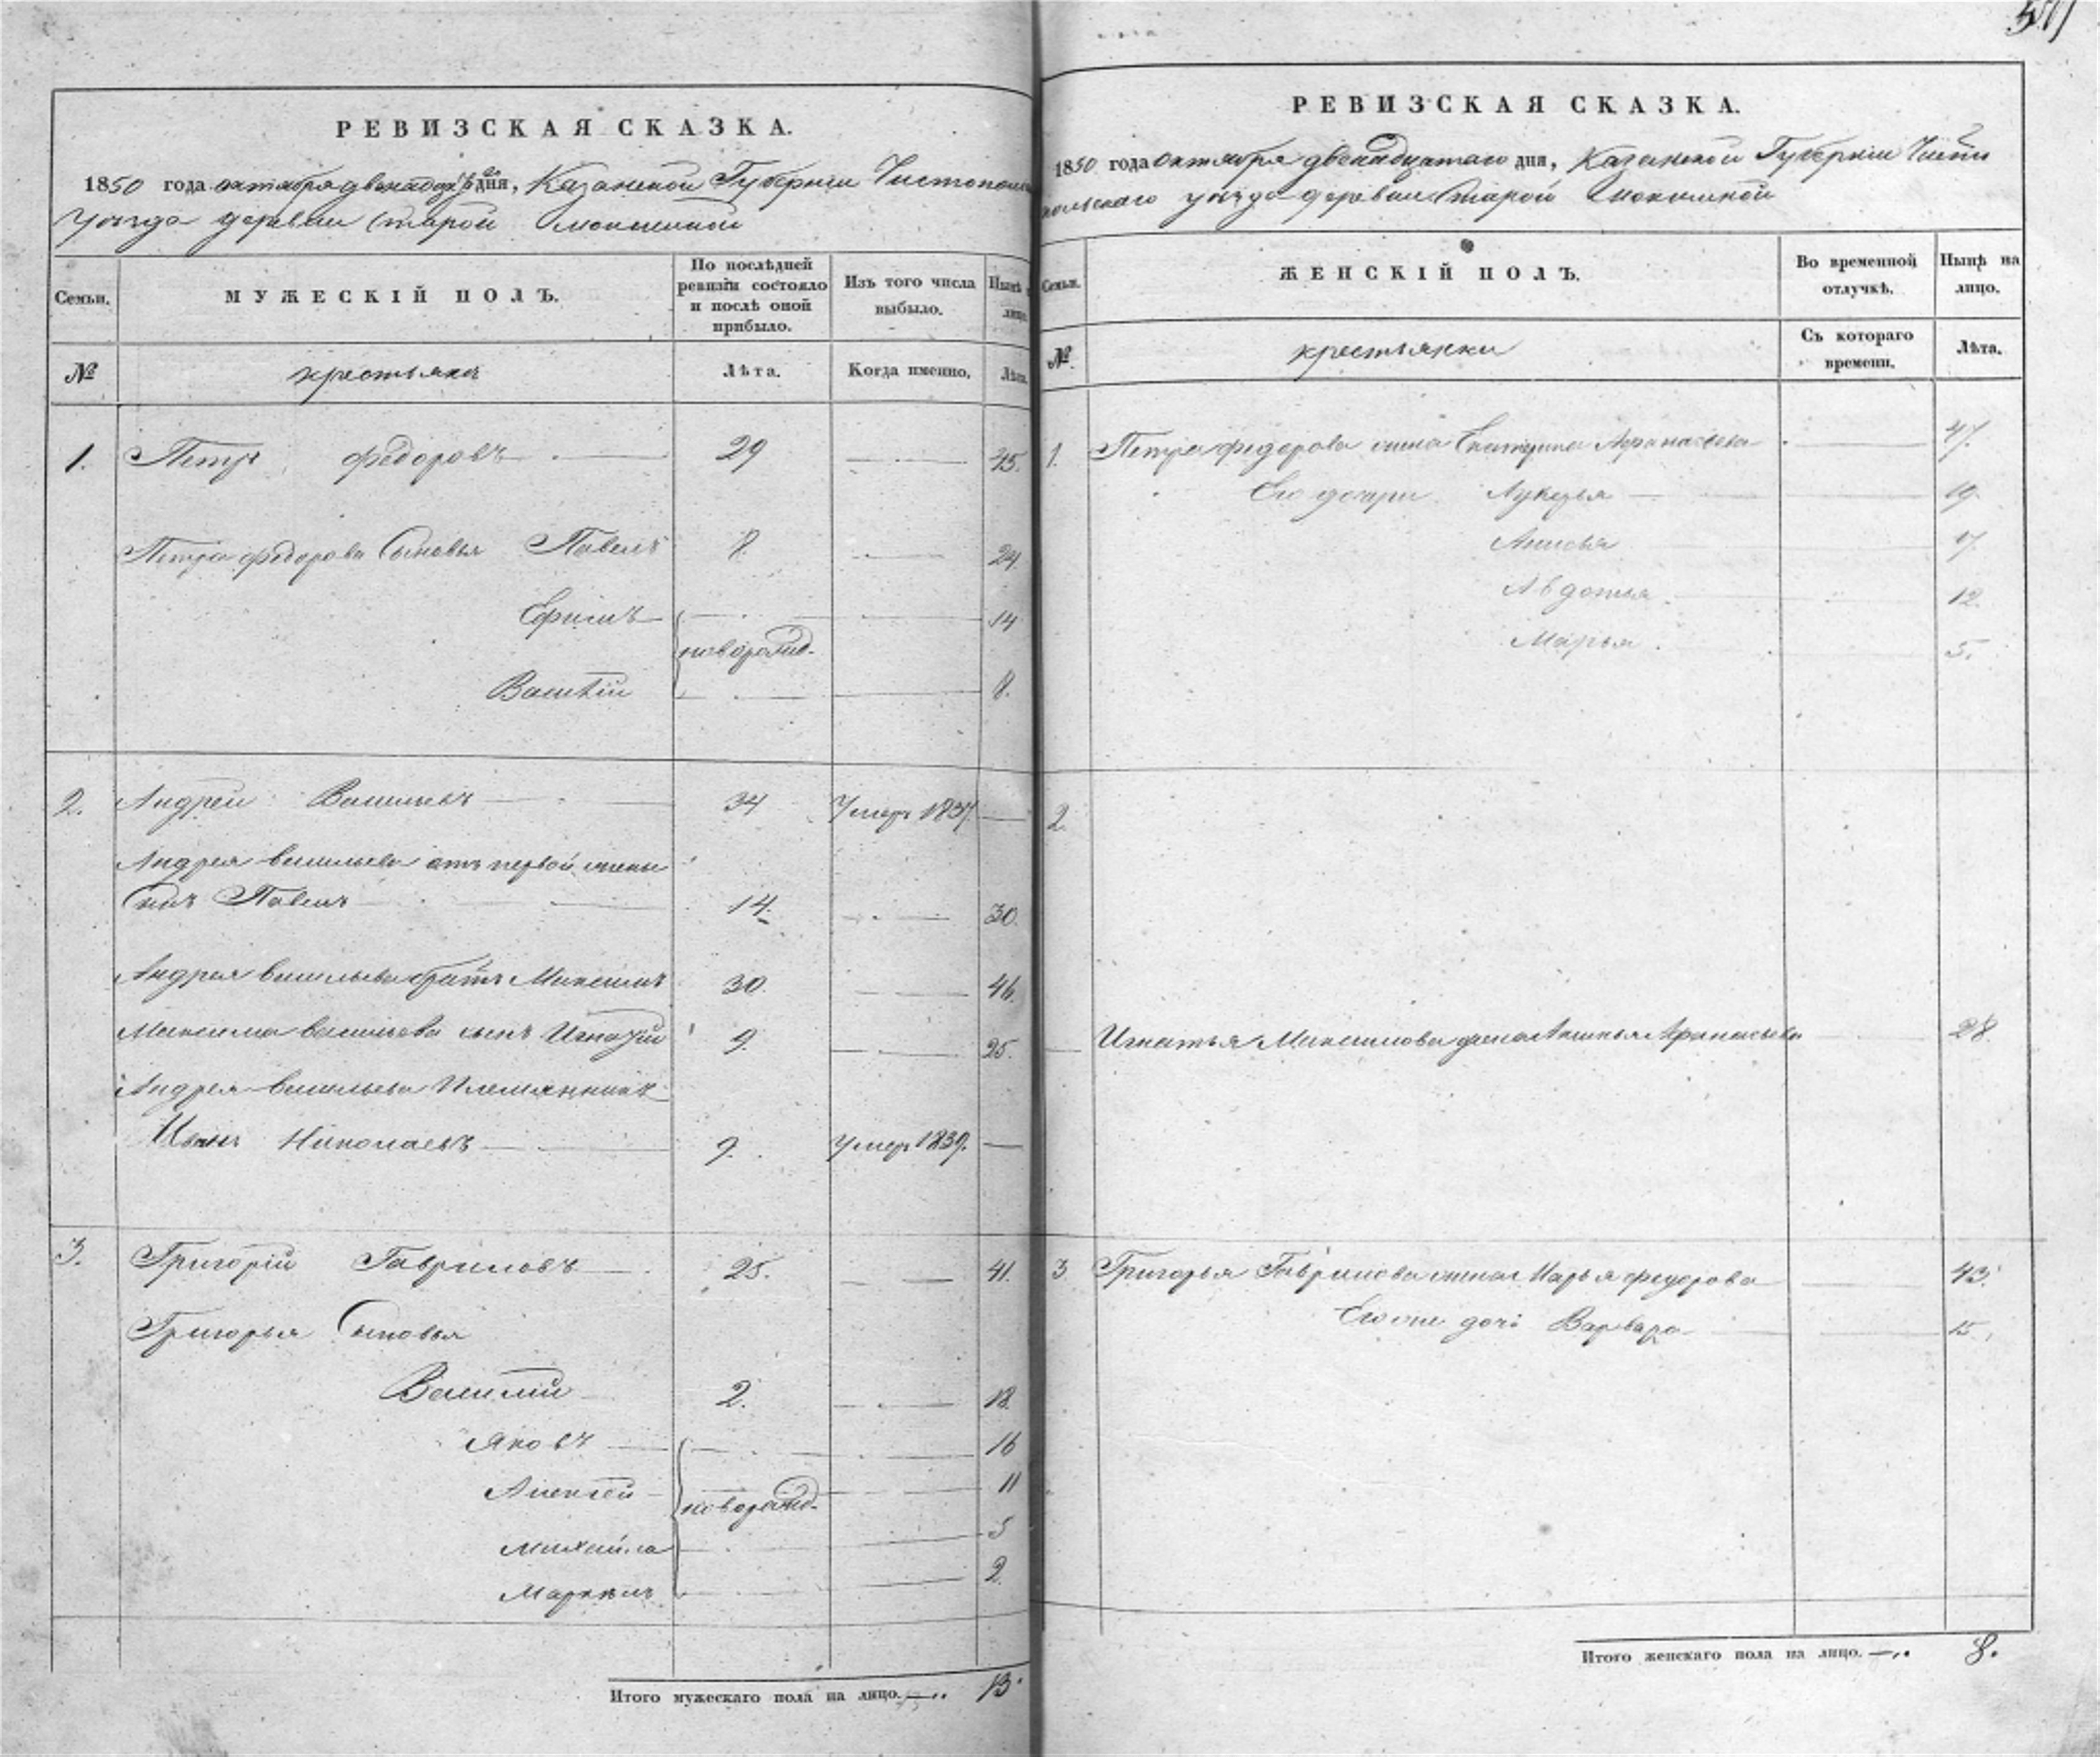 РЕВИЗСКАЯ СКАЗКА.
1850 года октября дня, Казанской Губернiи Чистополь
уѣзда деревни Старой Мокшиной
Семьи.
МУЖЕСКIЙ ПОЛЪ.
По послѣдней ревизiи состояло и послѣ оной прибыло.
Изъ того числа выбыло.
Нынѣ лицо.
№
крестьянъ
Лѣта.
Когда именно.
Лѣта.
1. Петръ Федоровъ 29 45.
Петра Федорова Сыновья Павелъ 8. 24
Ефимъ 14
новорожд.
Василiй 8.
2. Андрей Васильевъ 34 Умеръ 1837.
Андрея Васильева отъ первой жены
сынъ Павелъ 14. 30.
Андрея Васильева братъ Максимъ 30 46.
Максима Васильева сынъ Игнатiй 9. 25.
Андрея Васильева Племянникъ
Иванъ Николаевъ 9. Умеръ 1839.
3. Григорiй Гавриловъ 25. 41.
Григорья Сыновья
Василiй 2. 18.
Яковъ 16
Алексѣй 11
новорожд.
Михайла 5
Маркелъ 2
Итого мужескаго пола на лицо. 13.
РЕВИЗСКАЯ СКАЗКА.
1850 года Октября двенадцатаго дня, Казанской Губернiи Чисто
польскаго уѣзда деревни Старой Мокшиной
Семьи.
ЖЕНСКIЙ ПОЛЪ.
Во временной отлучкѣ.
Нынѣ на лицо.
№
крестьянки
Съ котораго времени.
Лѣта.
1. Петра Федорова жена Екатерина Афанасьева 47.
Его дочери Лукерья 19.
Анисья 17.
Авдотья 12.
Марья 5.
2.
Игнатья Максимова жена Афанасьева 28.
3 Григорья Гаврилова жена Марья Федорова 43.
Его же дочь Варвара 15.
Итого женскаго пола на лицо. 8.